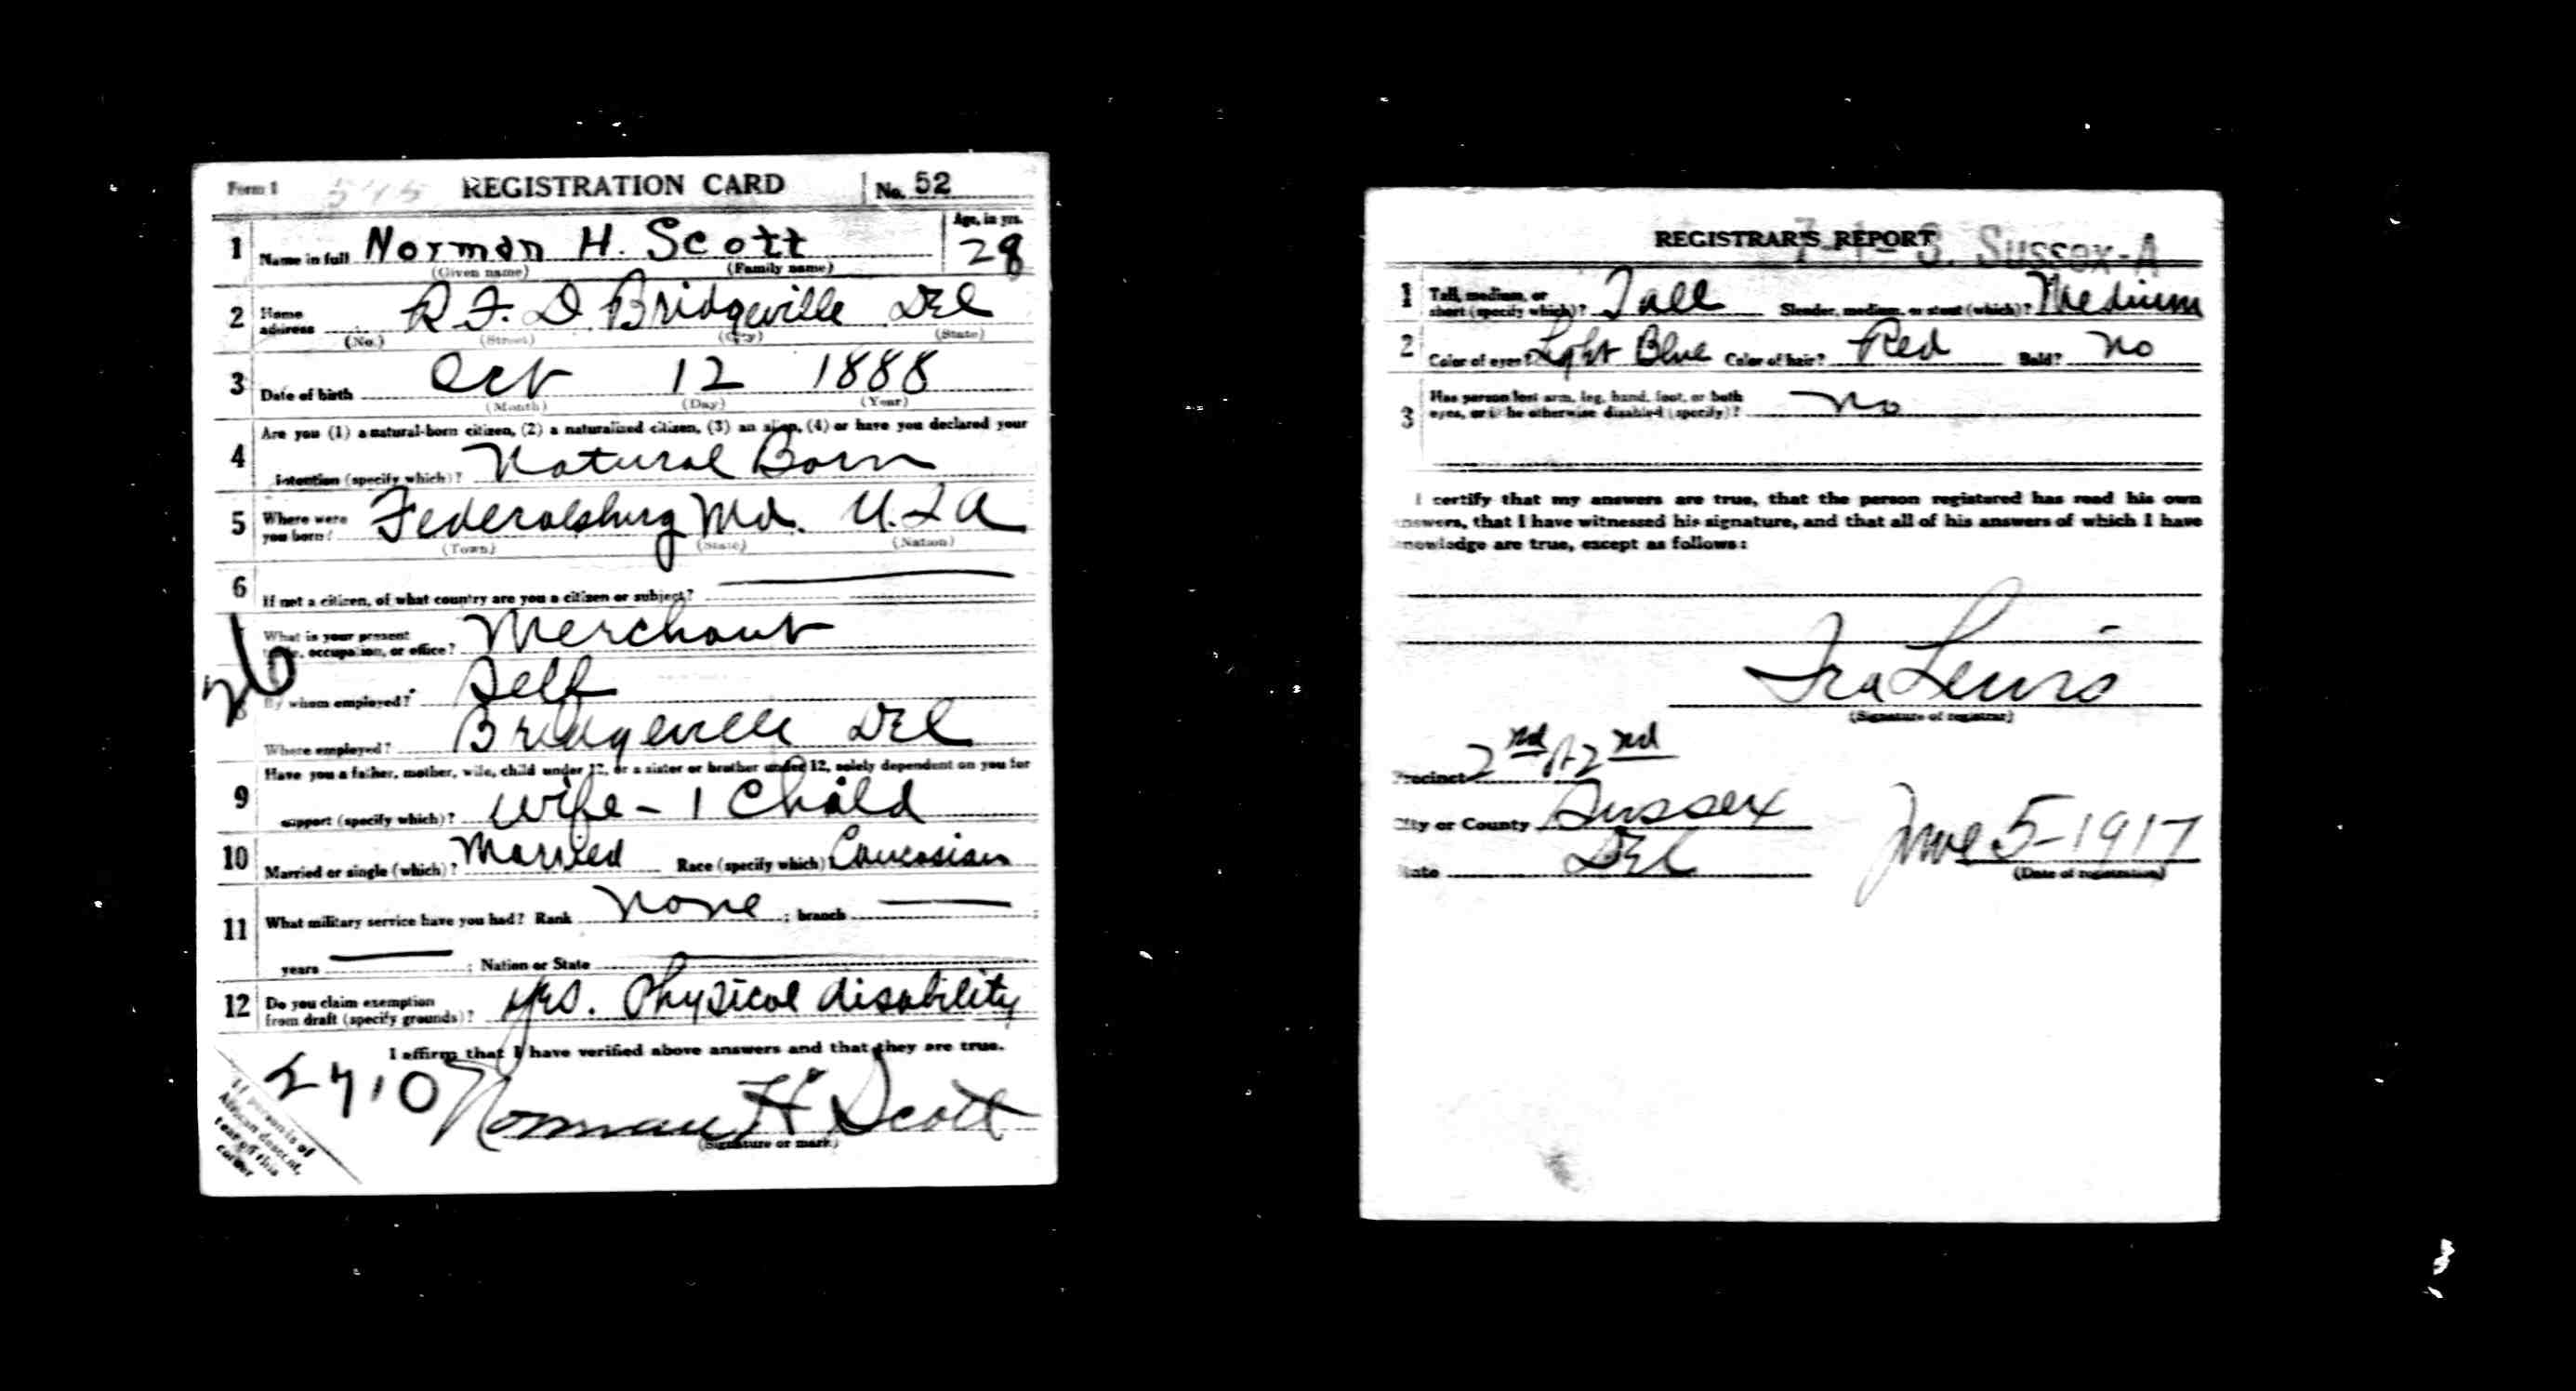 Form 1 REGISTRATION CARD No. 52
1 Name in full Norman H. Scott Age, in yrs. 28
(Given name) (Family name)
2 Home address R.F.D Bridgeville Del
(No.) (Street) (City) (State)
3 Date of birth Oct 12 1888
(Month) (Day) (Year)
4 Are you (1) a natural-born citizen, (2) a naturalized citizen, (3) an alien, (4) or have you declared your
intention (specify which)? Natural Born
5 Where were you born? Federalsburg Md. U.S.A
(Town) (State) (Nation)
6 If not a citizen, of what country are you a citizen or subject?
What is your present
occupation, or office? Merchant
26
8 By whom employed? Self
Where employed? Bridgeville Del
9 Have you a father, mother, wife, child under 12, or a sister or brother under 12, solely dependent on you for
support (specify which)? Wife - 1 Child
10 Married or single (which)? Married Race (specify which) Caucasian
11 What military service have you had? Rank None ; branch ;
years ; Nation or State
12 Do you claim exemption
from draft (specify grounds)? Yes. Physical disability
I affirm that I have verified above answers and that they are true.
2710 Norman H Scott
(Signature or mark)
If person is of
African descent,
tear off this
corner
REGISTRAR'S REPORT Sussex-A
1 Tall, medium, or
short (specify which)? Tall Slender, medium, or stout (which)? Medium
2 Color of eyes? Light Blue Color of hair? Red Bald? No
3 Has person lost arm, leg, hand, foot, or both
eyes, or is he otherwise disabled (specify)? No
I certify that my answers are true, that the person registered has read his own
answers, that I have witnessed his signature, and that all of his answers of which I have
knowledge are true, except as follows:
Ira Lewis
(Signature of registrar)
Precinct 2nd 2nd
City or County Sussex
State Del June 5-1917
(Date of registration)